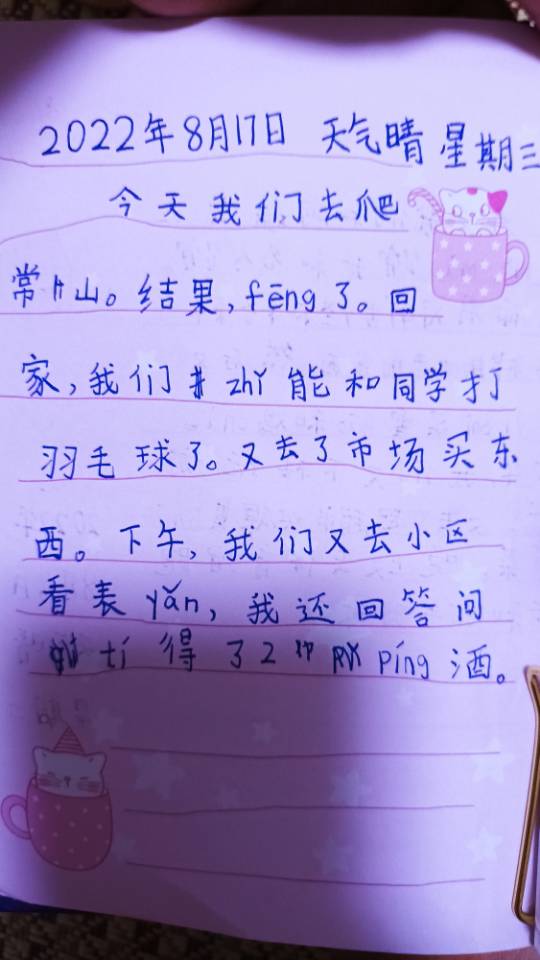 2022年8月17日 天气晴 星期三
今天我们去爬
常山。结果，fēng了。回
家，我们zhǐ能和同学打
羽毛球了。又去了市场买东
西。下午，我们又去小区
看表yǎn，我还回答问
tí得了2 píng酒。